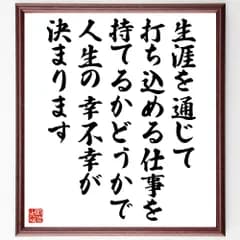 生涯を通じて
打ち込める仕事を
持てるかどうかで
人生の幸不幸が
決まります